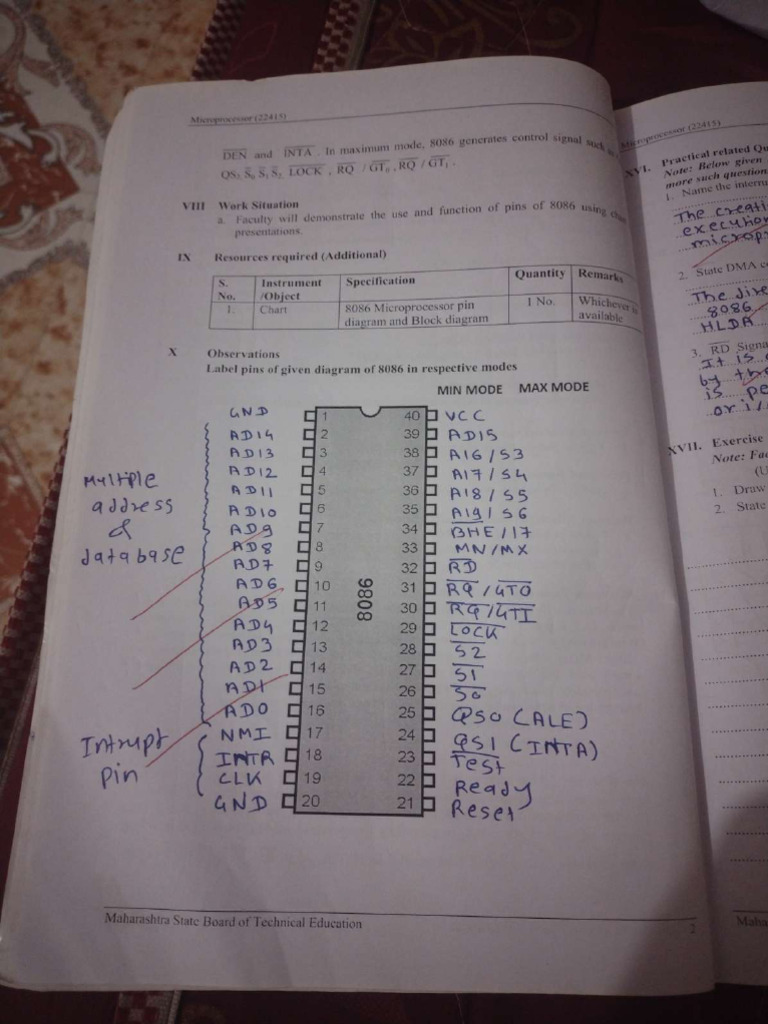 Microprocessor (22415)
DEN and INTA . In maximum mode, 8086 generates control signal such
QS1, S0 S1 S2 LOCK , RQ / GT0 , RQ / GT1 .
VIII Work Situation
a. Faculty will demonstrate the use and function of pins of 8086 using
presentations.
IX Resources required (Additional)
S. No. Instrument /Object Specification Quantity Remarks
1. Chart 8086 Microprocessor pin diagram and Block diagram 1 No. Whichever is available
X Observations
Label pins of given diagram of 8086 in respective modes
MIN MODE MAX MODE
GND 1 40 VCC
AD14 2 39 AD15
AD13 3 38 A16/S3
AD12 4 37 A17/S4
AD11 5 36 A18/S5
AD10 6 35 A19/S6
AD9 7 34 BHE/17
AD8 8 33 MN/MX
AD7 9 32 RD
AD6 10 31 RQ/GT0
AD5 11 30 RQ/GT1
AD4 12 29 LOCK
AD3 13 28 S2
AD2 14 27 S1
AD1 15 26 S0
AD0 16 25 QS0 (ALE)
NMI 17 24 QS1 (INTA)
INTR 18 23 Test
CLK 19 22 Ready
GND 20 21 Reset
8086
Multiple
address
&
database
Intrupt
pin
Maharashtra State Board of Technical Education
2
Microprocessor (22415)
XVI. Practical related Qu
Note: Below given
more such question
1. Name the intern
The creati
execution
micropr
2. State DMA
The dire
8086
HLDA
3. RD Signa
It is
by the
is pe
or i/
XVII. Exercise
Note: Fac
(U
1. Draw
2. State
Maha